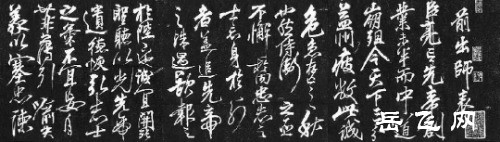 前出師表
臣亮言先帝創
業未半而中道
崩殂今天下三
益州疲敝此誠
危急存亡之秋
也然侍衛之臣
不懈於內忠志之
士忘身於外
者蓋追先帝
之殊遇欲報之
於陛下誠宜開
聖聽以光先帝
遺德恢弘志士
之氣不宜妄自
菲薄引喻失
義以塞忠諫
岳飞网